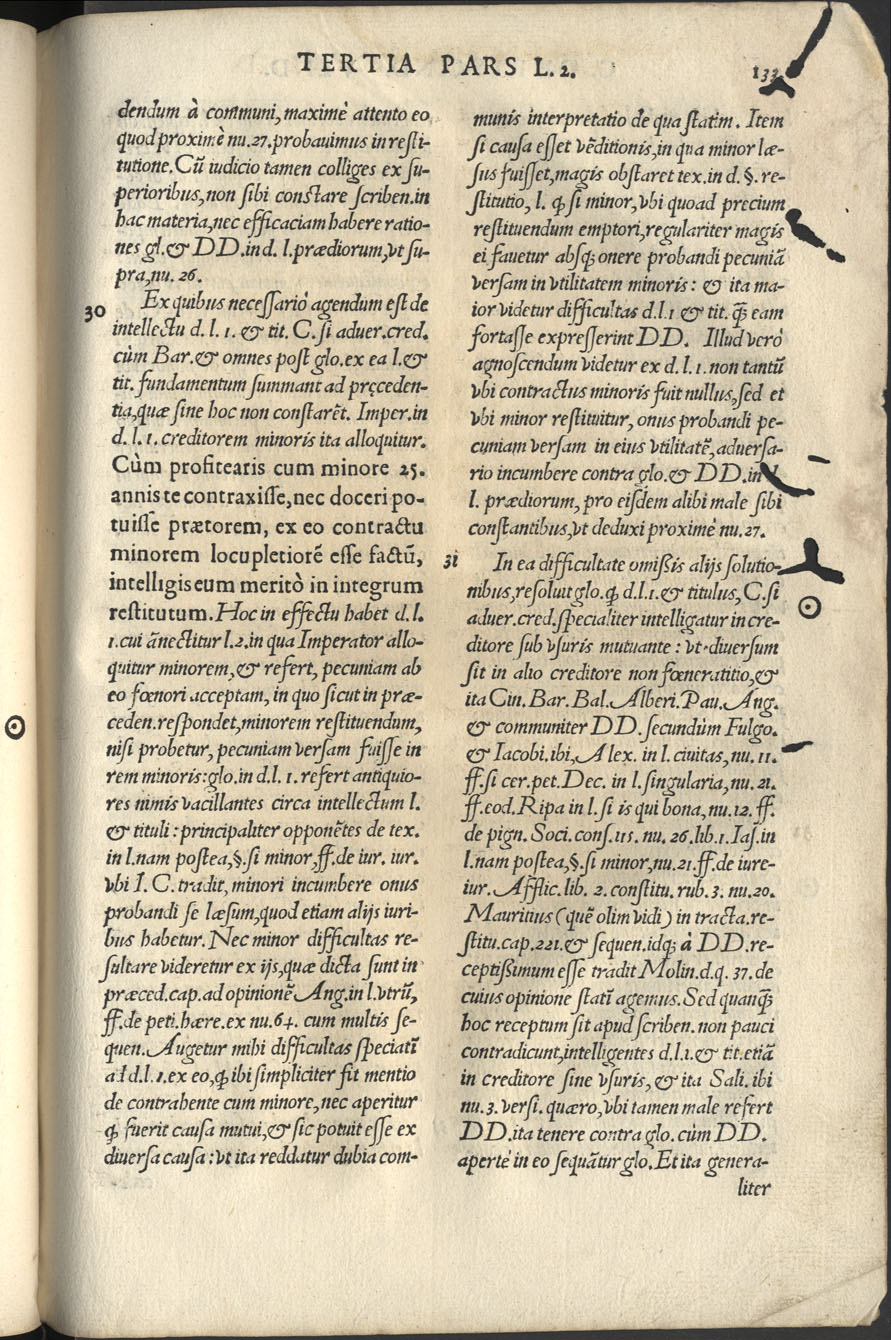 TERTIA PARS L. 2.
133
dendum à communi, maximè attento eo
quod proximè nu. 27. probauimus in resti-
tutione. Cũ iudicio tamen colliges ex su-
perioribus, non sibi constare scriben. in
hac materia, nec efficaciam habere ratio-
nes gl. & DD. in d. l. prædiorum, vt su-
pra, nu. 26.
30
Ex quibus necessariò agendum est de
intellectu d. l. 1. & tit. C. si aduer. cred.
cùm Bar. & omnes post glo. ex ea l. &
tit. fundamentum summant ad pręceden-
tia, quæ sine hoc non constarēt. Imper. in
d. l. 1. creditorem minoris ita alloquitur.
Cùm profitearis cum minore 25.
annis te contraxisse, nec doceri po-
tuisse prætorem, ex eo contractu
minorem locupletiorē esse factũ,
intelligis eum meritò in integrum
restitutum. Hoc in effectu habet d. l.
1. cui ãnectitur l. 2. in qua Imperator allo-
quitur minorem, & refert, pecuniam ab
eo fœnori acceptam, in quo sicut in præ-
ceden. respondet, minorem restituendum,
nisi probetur, pecuniam versam fuisse in
rem minoris: glo. in d. l. 1. refert antiquio-
res nimis vacillantes circa intellectum l.
& tituli: principaliter opponētes de tex.
in l. nam postea, §. si minor, ff. de iur. iur.
vbi I. C. tradit, minori incumbere onus
probandi se læsum, quod etiam alijs iuri-
bus habetur. Nec minor difficultas re-
sultare videretur ex ijs, quæ dicta sunt in
præced. cap. ad opinionē Ang. in l. vtrũ,
ff. de peti. hære. ex nu. 64. cum multis se-
quen. Augetur mihi difficultas speciatĩ
ad d. l. 1. ex eo, ꝙ ibi simpliciter fit mentio
de contrahente cum minore, nec aperitur
ꝙ fuerit causa mutui, & sic potuit esse ex
diuersa causa: vt ita reddatur dubia com-
munis interpretatio de qua statim. Item
si causa esset vēditionis, in qua minor læ-
sus fuisset, magis obstaret tex. in d. §. re-
stitutio, l. ꝙ si minor, vbi quoad precium
restituendum emptori, regulariter magis
ei fauetur absq; onere probandi pecuniã
versam in vtilitatem minoris: & ita ma-
ior videtur difficultas d. l. 1 & tit. ꝙ̃ eam
fortasse expresserint DD. Illud verò
agnoscendum videtur ex d. l. 1. non tantũ
vbi contractus minoris fuit nullus, sed et
vbi minor restituitur, onus probandi pe-
cuniam versam in eius vtilitatē, aduersa-
rio incumbere contra glo. & DD. in d.
l. prædiorum, pro eisdem alibi male sibi
constantibus, vt deduxi proximè nu. 27.
31
In ea difficultate omißis alijs solutio-
nibus, resoluit glo. ꝙ d. l. 1. & titulus, C. si
aduer. cred. specialiter intelligatur in cre-
ditore sub vsuris mutuante: vt diuersum
sit in alio creditore non fœneratitio, &
ita Cin. Bar. Bal. Alberi. Pau. Ang.
& communiter DD. secundùm Fulgo.
& Iacobi. ibi, Alex. in l. ciuitas, nu. 11.
ff. si cer. pet. Dec. in l. singularia, nu. 21.
ff. eod. Ripa in l. si is qui bona, nu. 12. ff.
de pign. Soci. cons. 115. nu. 26. lib. 1. Ias. in
l. nam postea, §. si minor, nu. 21. ff. de iure-
iur. Afflic. lib. 2. constitu. rub. 3. nu. 20.
Mauritius (quē olim vidi) in tracta. re-
stitu. cap. 221. & sequen. idq; à DD. re-
ceptißimum esse tradit Molin. d. q. 37. de
cuius opinione statĩ agemus. Sed quanꝙ̃
hoc receptum sit apud scriben. non pauci
contradicunt, intelligentes d. l. 1. & tit. etiã
in creditore sine vsuris, & ita Sali. ibi
nu. 3. versi. quæro, vbi tamen male refert
DD. ita tenere contra glo. cùm DD.
apertè in eo sequãtur glo. Et ita genera-
liter